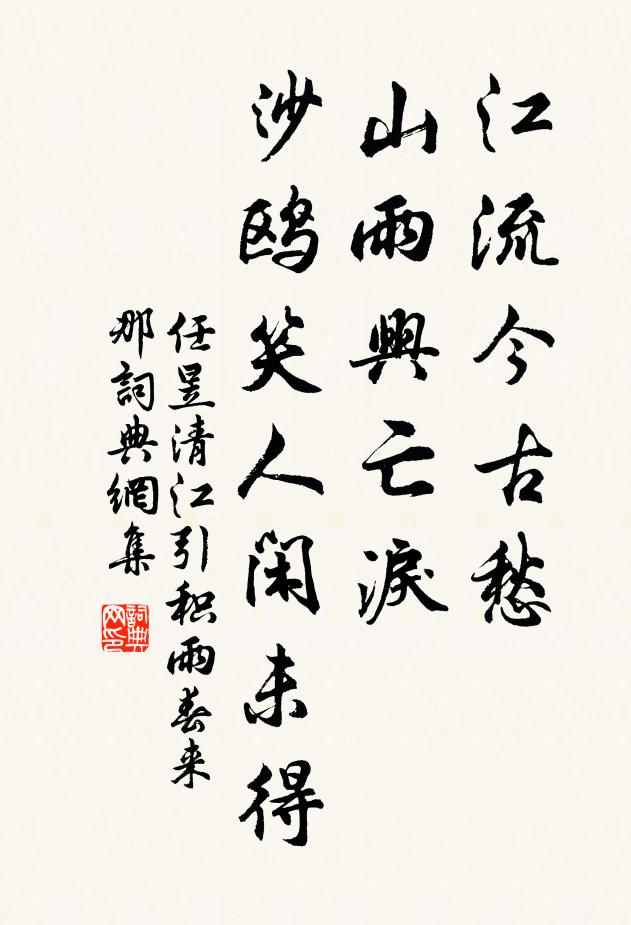 江流今古愁
山雨興亡淚
沙鸥笑人閑未得
任昱清江引积雨春来
那詞典網集
詞典网印